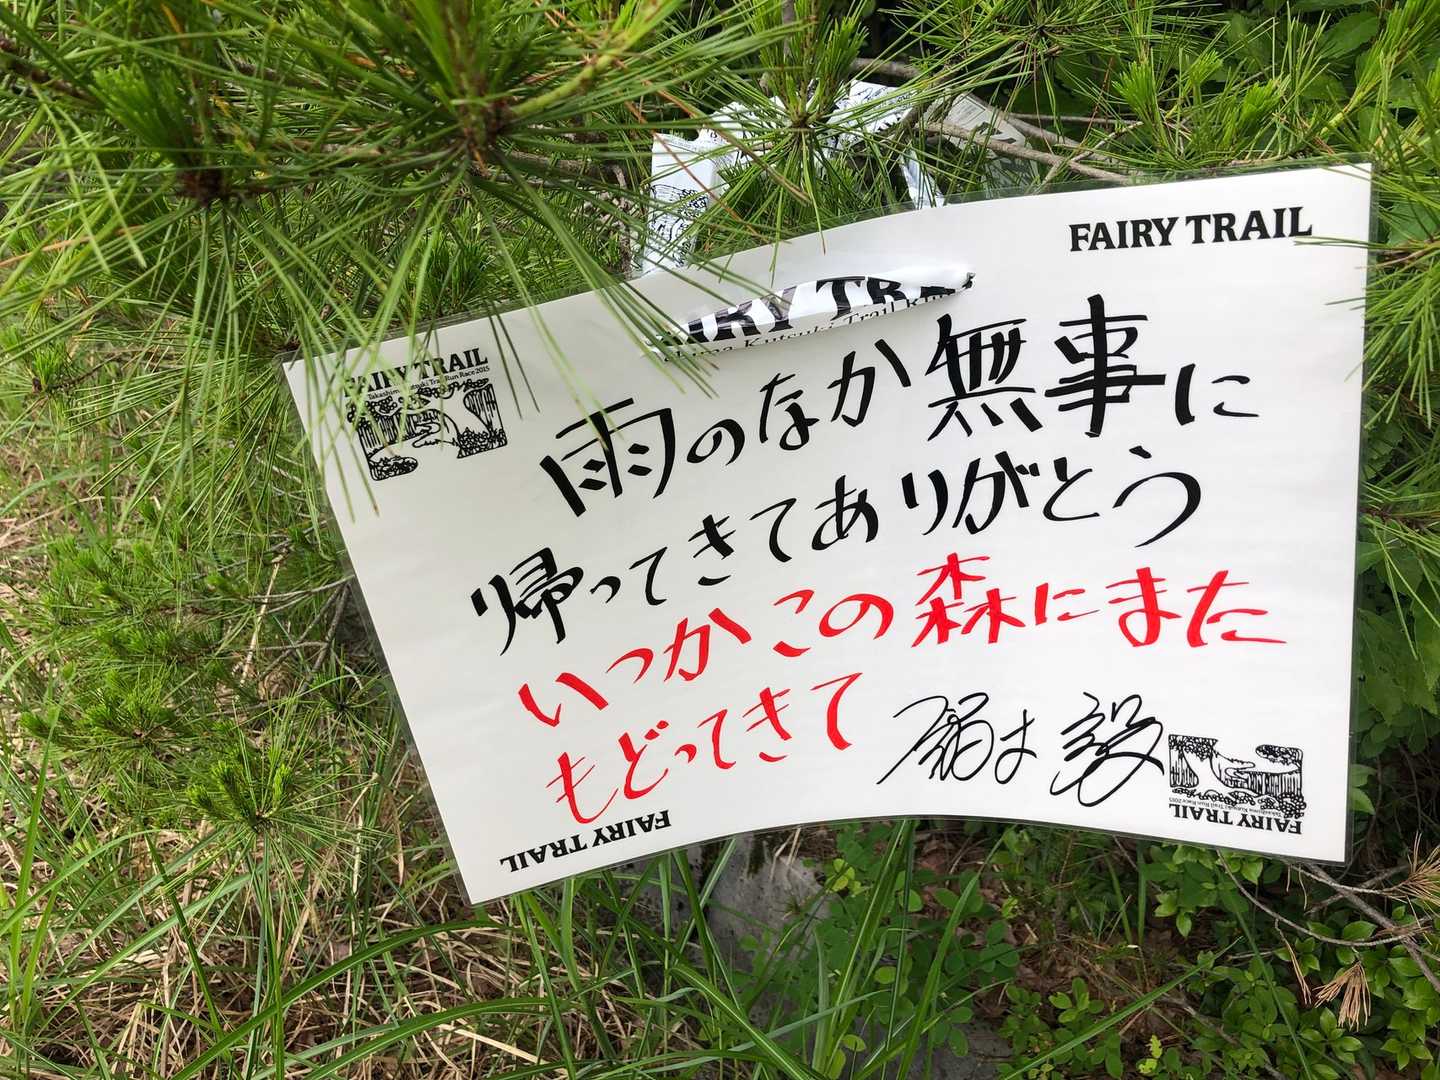 FAIRY TRAIL
FAIRY TRAIL
Kutsuki Trail Run
FAIRY TRAIL
Takashima Kutsuki Trail Run Race 2015
雨のなか無事に
帰ってきてありがとう
いつかこの森にまた
もどってきて
FAIRY TRAIL
Takashima Kutsuki Trail Run Race 2015
FAIRY TRAIL